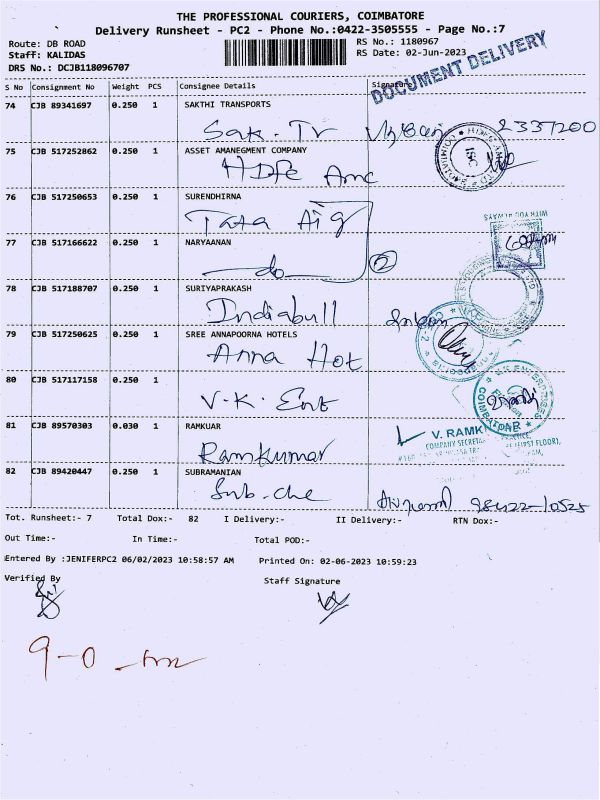 THE PROFESSIONAL COURIERS, COIMBATORE
Delivery Runsheet - PC2 - Phone No.:0422-3505555 - Page No.:7
Route: DB ROAD
RS No.: 1180967
Staff: KALIDAS
RS Date: 02-Jun-2023
DRS No.: DCJB118096707
DOCUMENT DELIVERY
S No Consignment No Weight PCS Consignee Details Signature
74 CJB 89341697 0.250 1 SAKTHI TRANSPORTS
Sak. Tr 2337200
75 CJB 517252862 0.250 1 ASSET AMANEGMENT COMPANY
HDFC Amc
76 CJB 517250653 0.250 1 SURENDHIRNA
Tata Aig
WITH YOU ALWAYS
77 CJB 517166622 0.250 1 NARYAANAN
do 2
78 CJB 517188707 0.250 1 SURIYAPRAKASH
Indiabull
79 CJB 517250625 0.250 1 SREE ANNAPOORNA HOTELS
Anna Hot
80 CJB 517117158 0.250 1
V.K. Ent
V.K ENTERPRISES
COIMBATORE
81 CJB 89570303 0.030 1 RAMKUAR
Ramkumar
V. RAMK
COMPANY SECRETA
(FIRST FLOOR),
82 CJB 89420447 0.250 1 SUBRAMANIAN
Sub. che 98422-10525
Tot. Runsheet:- 7 Total Dox:- 82 I Delivery:- II Delivery:- RTN Dox:-
Out Time:- In Time:- Total POD:-
Entered By :JENIFERPC2 06/02/2023 10:58:57 AM Printed On: 02-06-2023 10:59:23
Verified By Staff Signature
9-0